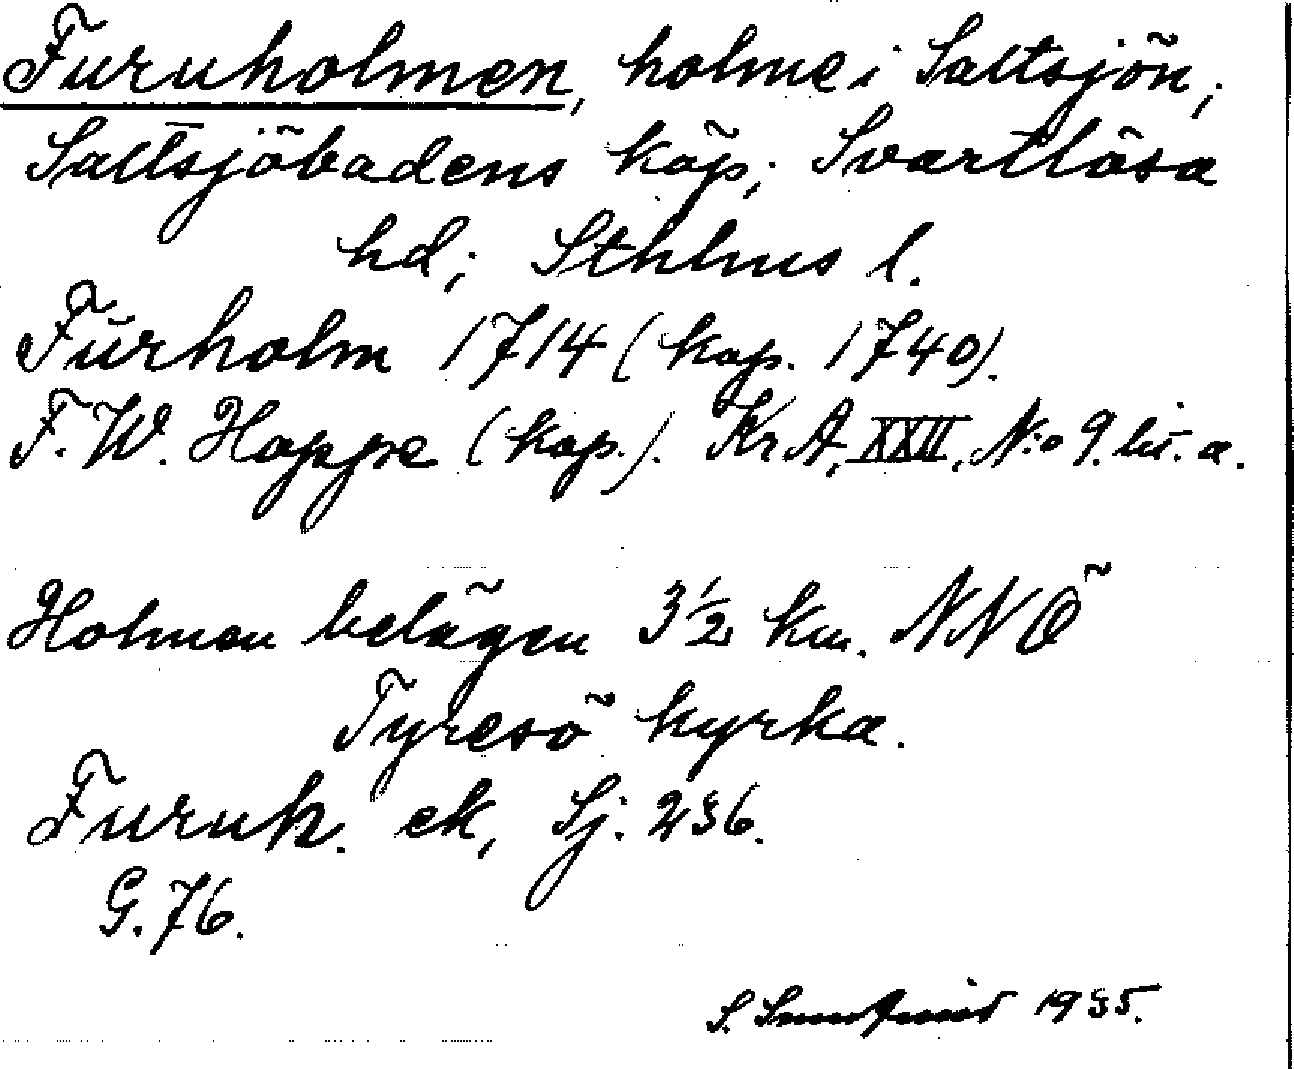 Furuholmen, holme i Saltsjön;
Saltsjöbadens köp; Svartlösa
hd; Sthlms l.
Furholm 1714 (kop. 1740).
F. W. Hoppe (kop.). Kr A, XXII, N:o 9. lit. a.
Holmen belägen 3 1/2 km. NNÖ
Tyresö kyrka.
Furuh. ek, Sj. 236.
G. 76.
S. 1935.